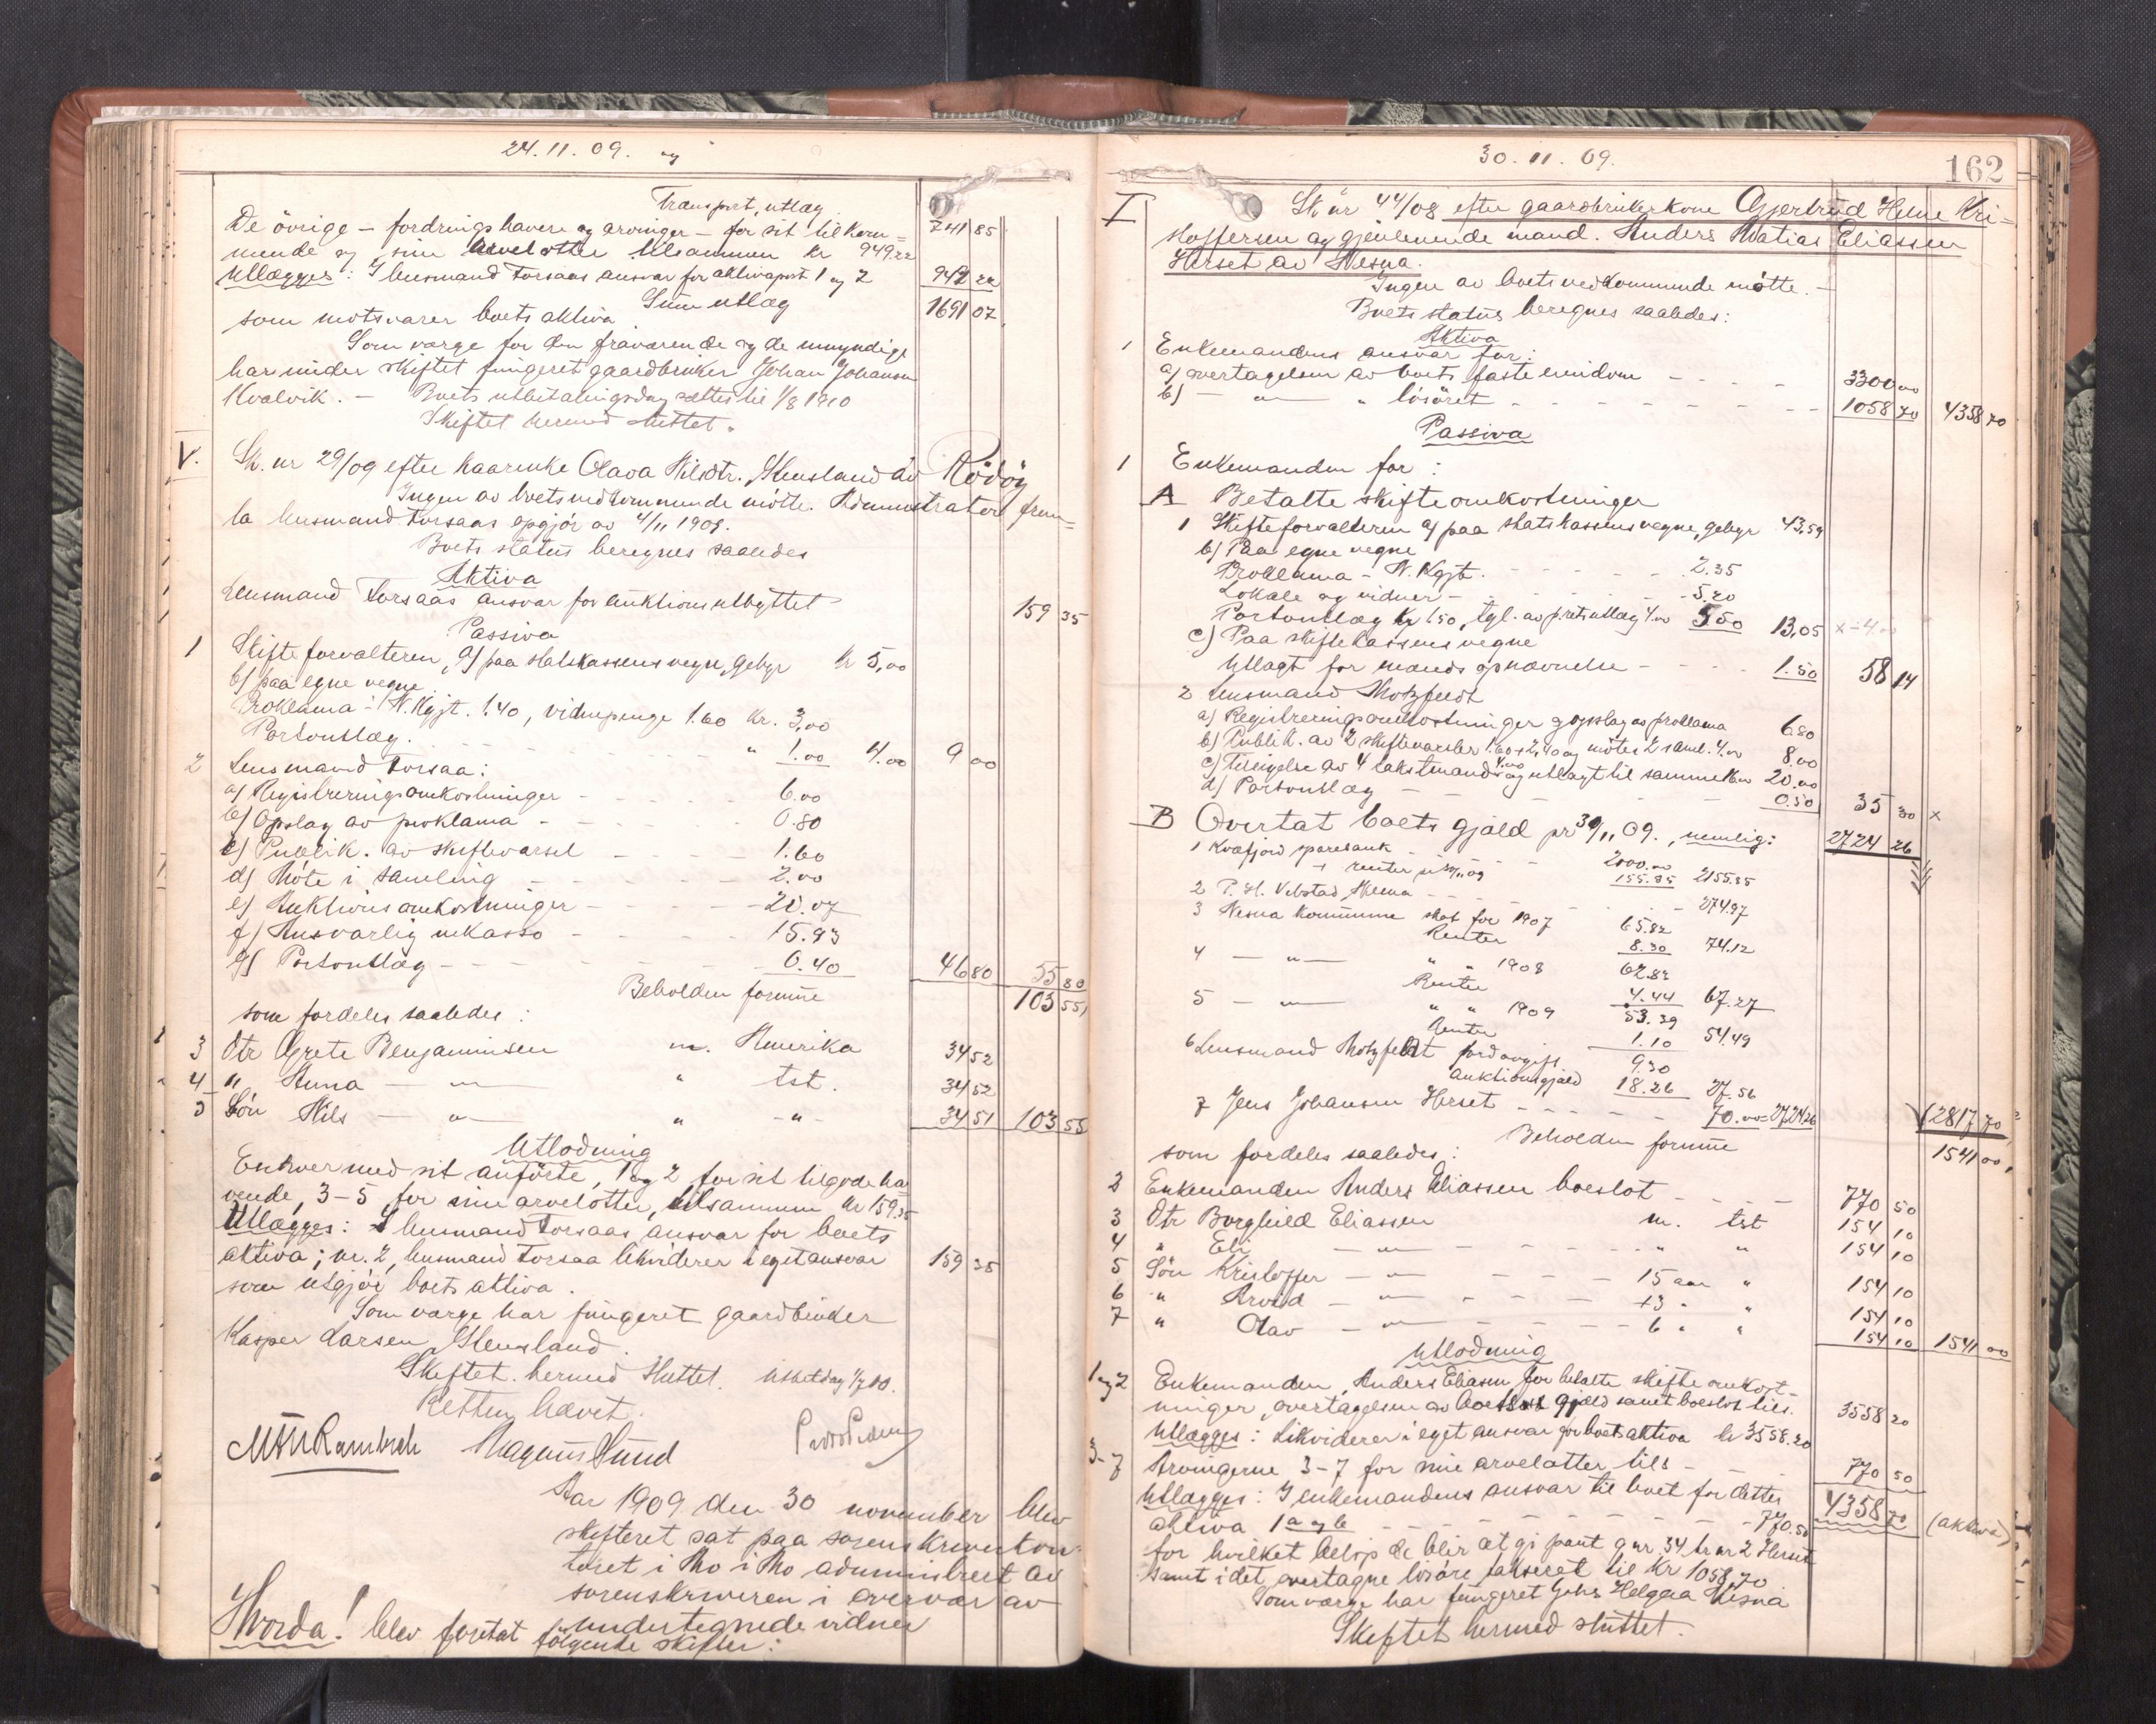 24.11.09. og
Transport, utlæg 741 85
De övrige – fordringshavere og arvinger – for sit tilkom=
mende og sine arvelotter tilsammen kr 949.22
Utlægges: I lensmand Forsaas ansvar for aktivapost 1 og 2 949 22
Sum utlæg
som motsvarer boets aktiva 1691 07
Som værge for den fraværende og de umyndige
har under skiftet fungeret gaardbruker Johan Johansen
Kvalvik. – Boets utbetalingsdag sættes til 1/8 1910
Skiftet hermed sluttet.
V. Sk. nr 29/09 efter kaarenke Olava Nilsdtr. Stensland av Rödöy
Ingen av boets vedkommende mötte. Administrator frem=
la lensmand Forsaas opgjör av 4/11 1909.
Boets status beregnes saaledes
Aktiva
1 Lensmand Forsaas ansvar for auktionsutbyttet 159 35
Passiva
1 Skifteforvalteren, a) paa statskassens vegne, gebyr kr 5,00
b) paa egne vegne
Proklama i N. Kgjt. 1.40, vidnepenge 1.60 kr. 3,00
Portoutlæg. " 1.00 4.00 9 00
2 Lensmand Forsaa:
a) Registreringsomkostninger 6.00
b) Opslag av proklama 0.80
c) Publik. av skiftevarsel 1.60
d) Möte i samling 2.00
e) Auktionsomkostninger 20.07
f) Ansvarlig inkasso 15.93
g) Portoutlæg 0.40 46 80 55 80
Beholden formue 103 55
som fordeles saaledes:
3 Dtr Grete Benjaminsen m. Amerika 34 52
4 " Anna – " – " tst. 34 52
5 Sön Nils – " – " – " – 34 51 103 55
Utlodning
Enhver med sit anförte, 1 og 2 for sit tilgodeha=
vende, 3–5 for sine arvelotter, tilsammen kr 159.35
Utlægges: I lensmand Forsaas ansvar for boets
aktiva; nr. 2, lensmand Forsaa likviderer i eget ansvar 159 35
som utgjör boets aktiva.
Som værge har fungeret gaardbruker
Kasper Larsen Stensland.
Skiftet hermed sluttet. Utbet.dag 1/7 10.
Retten hævet.
Rambech Magnus Sund Peder Pedersen
Aar 1909 den 30 november blev
skifteret sat paa sorenskriverkon=
toret i Mo i Mo administrert av
sorenskriveren i overvær av
undertegnede vidner
Hvorda! blev foretat følgende skifter:
30.11.09. 162
I Sk nr 44/08 efter gaardbrukerkone Gjertrud Helene Kri=
stoffersen og gjenlevende mand. Anders Matias Eliassen
Herset av Nesna.
Ingen av boets vedkommende mötte. –
Boets status beregnes saaledes:
Aktiva
1 Enkemandens ansvar for:
a) overtagelsen av boets faste eiendom 3300 00
b) – " – " lösöret 1058 70 4358 70
Passiva
1 Enkemanden for:
A Betalte skifteomkostninger
1 Skifteforvalteren a) paa statskassens vegne, gebyr 43,59
b) Paa egne vegne
Proklama – N. Kgjt. 2.35
Lokale og vidner 5.20
Portoutlæg kr 1.50, tgl. av pretsutlæg 4.00 5.50 13,05 x – 4.00
c) Paa skiftekassens vegne
Utlagt for mænds opnævnelse 1.50 58 14
2 Lensmand Motzfeldt
a) Registreringsomkostninger og opslag av proklama 6.80
b) Publik. av 2 skiftevarsler 1.60 + 2.40 og möter 2 saml. 4.00 8.00
c) Tilsigelse av 4 takstmænd 4.00 og utlagt til samme 16.00 20.00
d) Portoutlæg 0.50 35 30 x
B Overtat boets gjæld pr 30/11 09., nemlig: 2724 26
1 Kvæfjord sparebank 2000.00
+ renter til 30/11 09 155.85 2155.85
2 P. H. Vebstad Nesna 274.97
3 Nesna kommune skat for 1907 65.82
Renter 8.30 74.12
4 – " – " " 1908 62.82
Renter 4.44 67.27
5 – " – " " 1909 53.39
Renter 1.10 54.49
6 Lensmand Motzfeldt jordavgift 9.30
auktionsgjæld 18.26 27.56
7 Jens Johansen Herset 70.00 = 2724.26 2817 70
Beholden formue 1541 00
som fordeles saaledes:
2 Enkemanden Anders Eliassen boeslot 770 50
3 Dtr Borghild Eliassen m. tst 154 10
4 " Eli – " – " " 154 10
5 Sön Kristoffer – " – 15 aar " 154 10
6 " Arvid – " – 13 " " 154 10
7 " Olav – " – 6 " " 154 10 1541 00
Utlodning
1 og 2 Enkemanden, Anders Eliassen for betalte skifteomkost=
ninger, overtagelsen av boets gjæld samt boeslot tils. 3558 20
Utlægges: Likviderer i eget ansvar for boets aktiva kr 3558.20
3–7 Arvingerne 3–7 for sine arvelotter tils – 770 50
Utlægges: I enkemandens ansvar til boet for dettes 4358 70 (aktiva)
aktiva 1 a og b 770.50
for hvilket belöp de blir at gi pant g nr 34 br nr 2 Herset
samt i det overtagne lösöre takseret til kr 1058,70
Som værge har fungeret Johs Helgaa Nesna
Skiftet hermed sluttet.